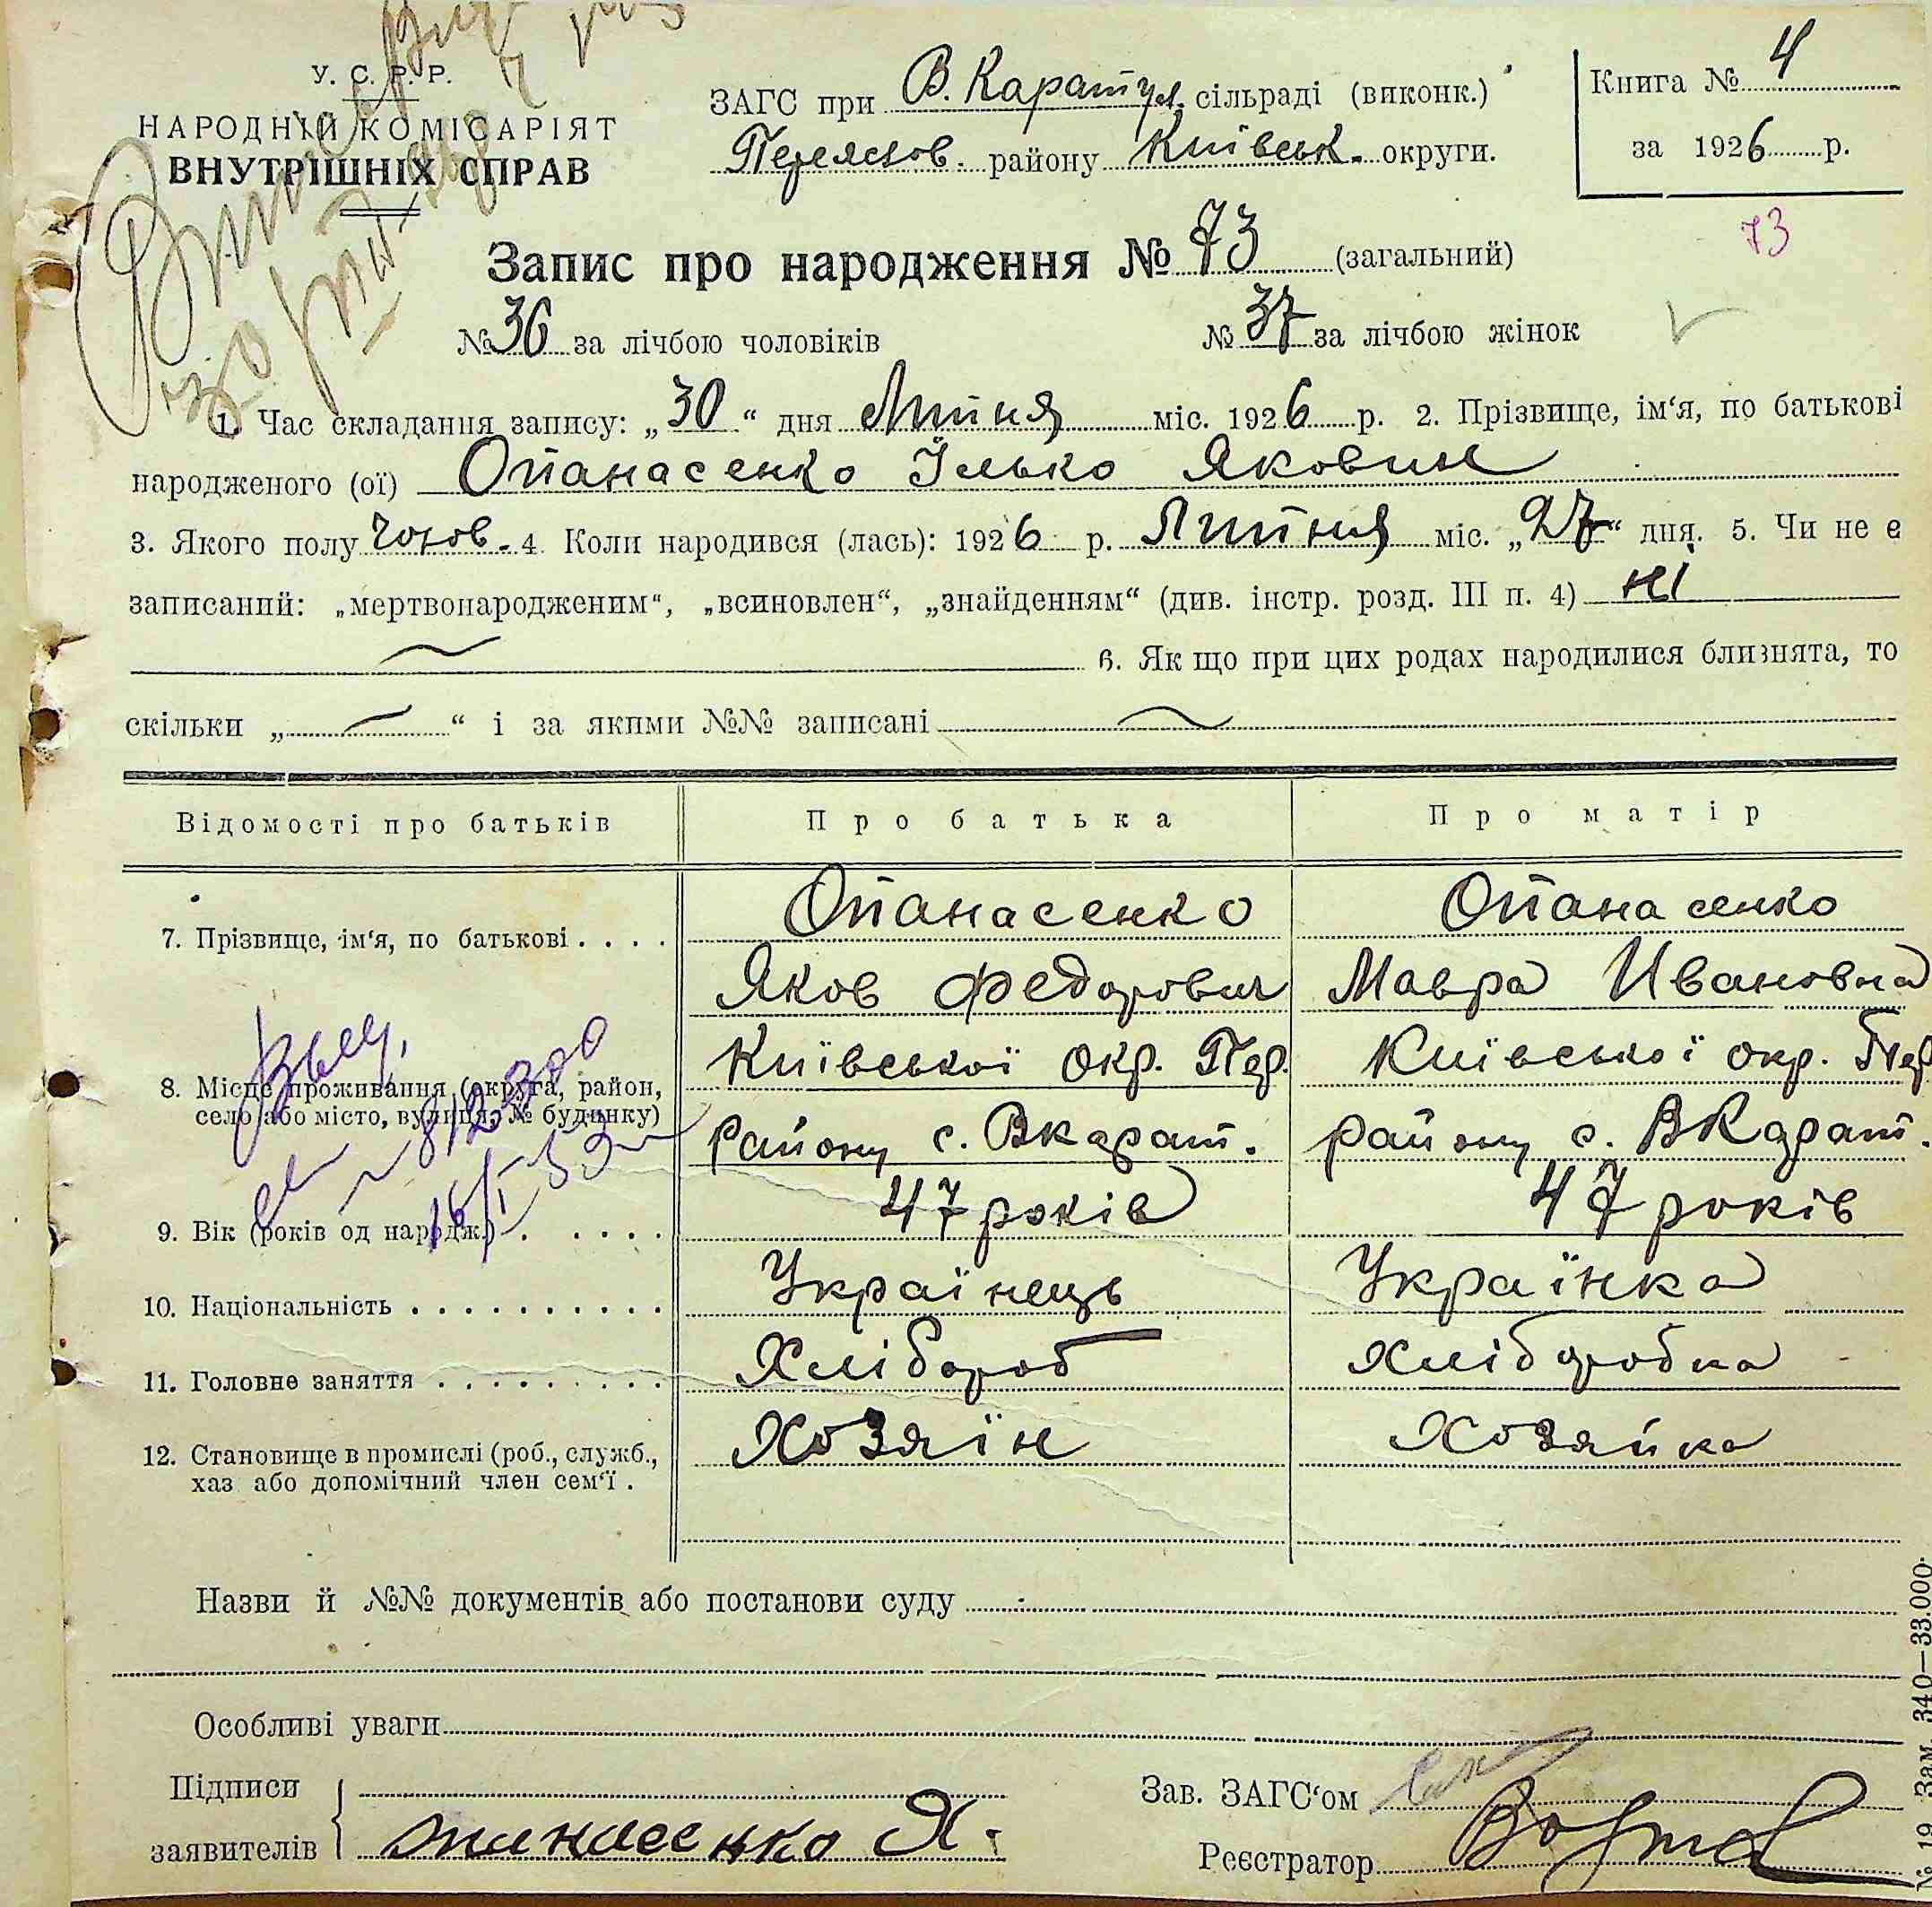 У. С. Р. Р.
НАРОДНІЙ КОМІСАРІЯТ
ВНУТРІШНІХ СПРАВ
ЗАГС при В. Каратул. сільраді (виконк.)
Переяслов. району Київськ. округи.
Книга № 4
за 1926 р.
73
Запис про народження № 73 (загальний)
№ 36 за лічбою чоловіків № 37 за лічбою жінок
1. Час складання запису: „30“ дня Липня міс. 1926 р. 2. Прізвище, ім‘я, по батькові
народженого (ої) Опанасенко Ілько Якович
3. Якого полу чолов. 4. Коли народився (лась): 1926 р. Липня міс. „27“ дня. 5. Чи не є
записаний: „мертвонародженим“, „всиновлен“, „знайденням“ (див. інстр. розд. III п. 4) ні
6. Як що при цих родах народилися близнята, то
скільки „ — “ і за якими №№ записані —
Відомості про батьків Про батька Про матір
7. Прізвище, ім‘я, по батькові . . . . Опанасенко Опанасенко
Яков Федорович Мавра Ивановна
8. Місце проживання (округа, район, Київської окр. Пер. Київської окр. Пер
село або місто, вулиця, № будинку) району с. Вкарат. району с. ВКарат.
9. Вік (років од народж.) . . . . . 47 років 47 років
10. Національність . . . . . . . . . . Українець Українка
11. Головне заняття . . . . . . . . . Хлібороб Хліборобка
12. Становище в промислі (роб., служб., Хозяїн Хозяйка
хаз або допомічний член сем‘ї .
16/I 53
Назви й №№ документів або постанови суду
Особливі уваги
Підписи
заявителів Опанасенко Я.
Зав. ЗАГС‘ом
Реєстратор
№ 19 Зам. 340—33.000.